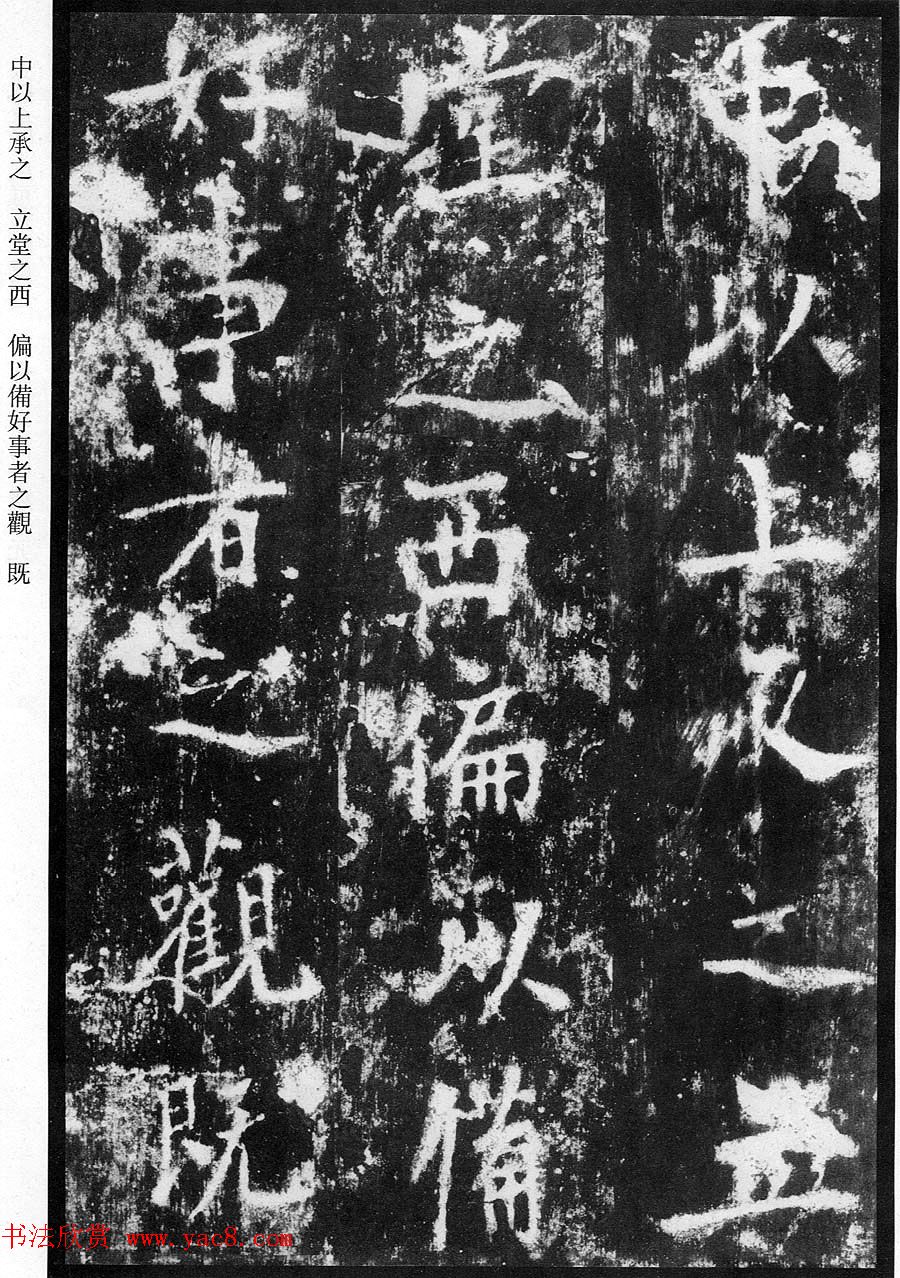 中以上承之立
堂之西偏以備
好事者之觀既
中以上承之　立堂之西　偏以備好事者之觀　既
书法欣赏 www.yac8.com